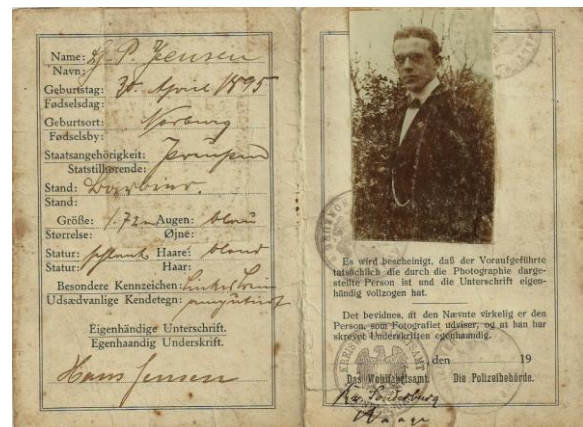 Name: H. P. Jensen
Navn:
Geburtstag: 30. April 1895
Fødselsdag:
Geburtsort: Norburg
Fødselsby:
Staatsangehörigkeit:
Statstilhørende:
Stand: Barbier.
Stand:
Größe: 1.72m Augen: blau
Størrelse: Øjne:
Statur: schlank Haare: blond
Statur: Haar:
Besondere Kennzeichen: linkes Bein
Udsædvanlige Kendetegn: amputiert
Eigenhändige Unterschrift.
Egenhaandig Underskrift.
Hans Jensen
Es wird bescheinigt, daß der Voraufgeführte
tatsächlich die durch die Photographie darge-
stellte Person ist und die Unterschrift eigen-
händig vollzogen hat.
Det bevidnes, at den Nævnte virkelig er den
Person, som Fotografiet udviser, og at han har
skrevet Underskriften egenhaandig.
den 19
Das Wohlfahrtsamt. Die Polizeibehörde.
Sonderburg